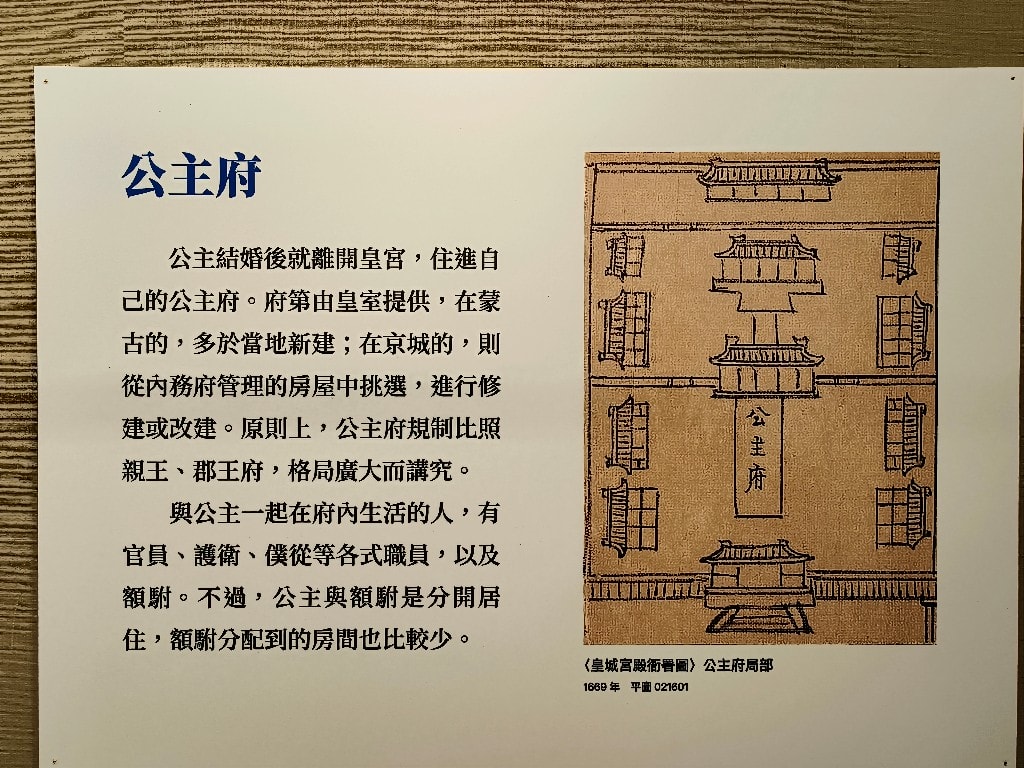 公主府
公主結婚後就離開皇宮，住進自
己的公主府。府第由皇室提供，在蒙
古的，多於當地新建；在京城的，則
從內務府管理的房屋中挑選，進行修
建或改建。原則上，公主府規制比照
親王、郡王府，格局廣大而講究。
與公主一起在府內生活的人，有
官員、護衛、僕從等各式職員，以及
額駙。不過，公主與額駙是分開居
住，額駙分配到的房間也比較少。
公主府
〈皇城宮殿衙署圖〉公主府局部
1669 年　平圖 021601